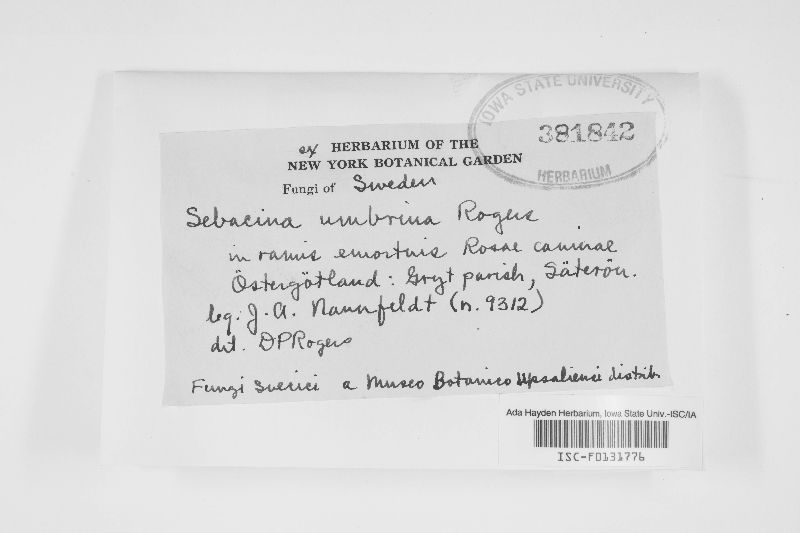 IOWA STATE UNIVERSITY
381842
HERBARIUM
ex HERBARIUM OF THE
NEW YORK BOTANICAL GARDEN
Fungi of Sweden
Sebacina umbrina Rogers
in ramis emortuis Rosae caninae
Östergötland: Gryt parish, Säterön.
leg. J. A. Nannfeldt (n. 9312)
det. DPRogers
Fungi Suecici a Museo Botanico Upsaliensi distrib.
Ada Hayden Herbarium, Iowa State Univ.-ISC/IA
ISC-F0131776